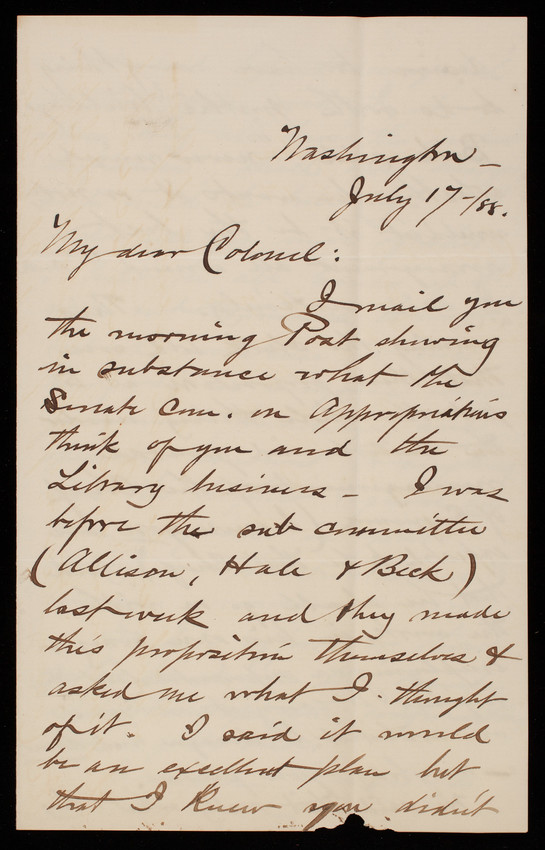 Washington –
July 17–/88.
My dear Colonel:
I mail you
the morning Post showing
in substance what the
Senate Com. on Appropriations
think of you and the
Library business – I was
before the sub committee
(Allison, Hale & Beck)
last week and they made
this proposition themselves &
asked me what I thought
of it. I said it would
be an excellent plan but
that I knew you didn't